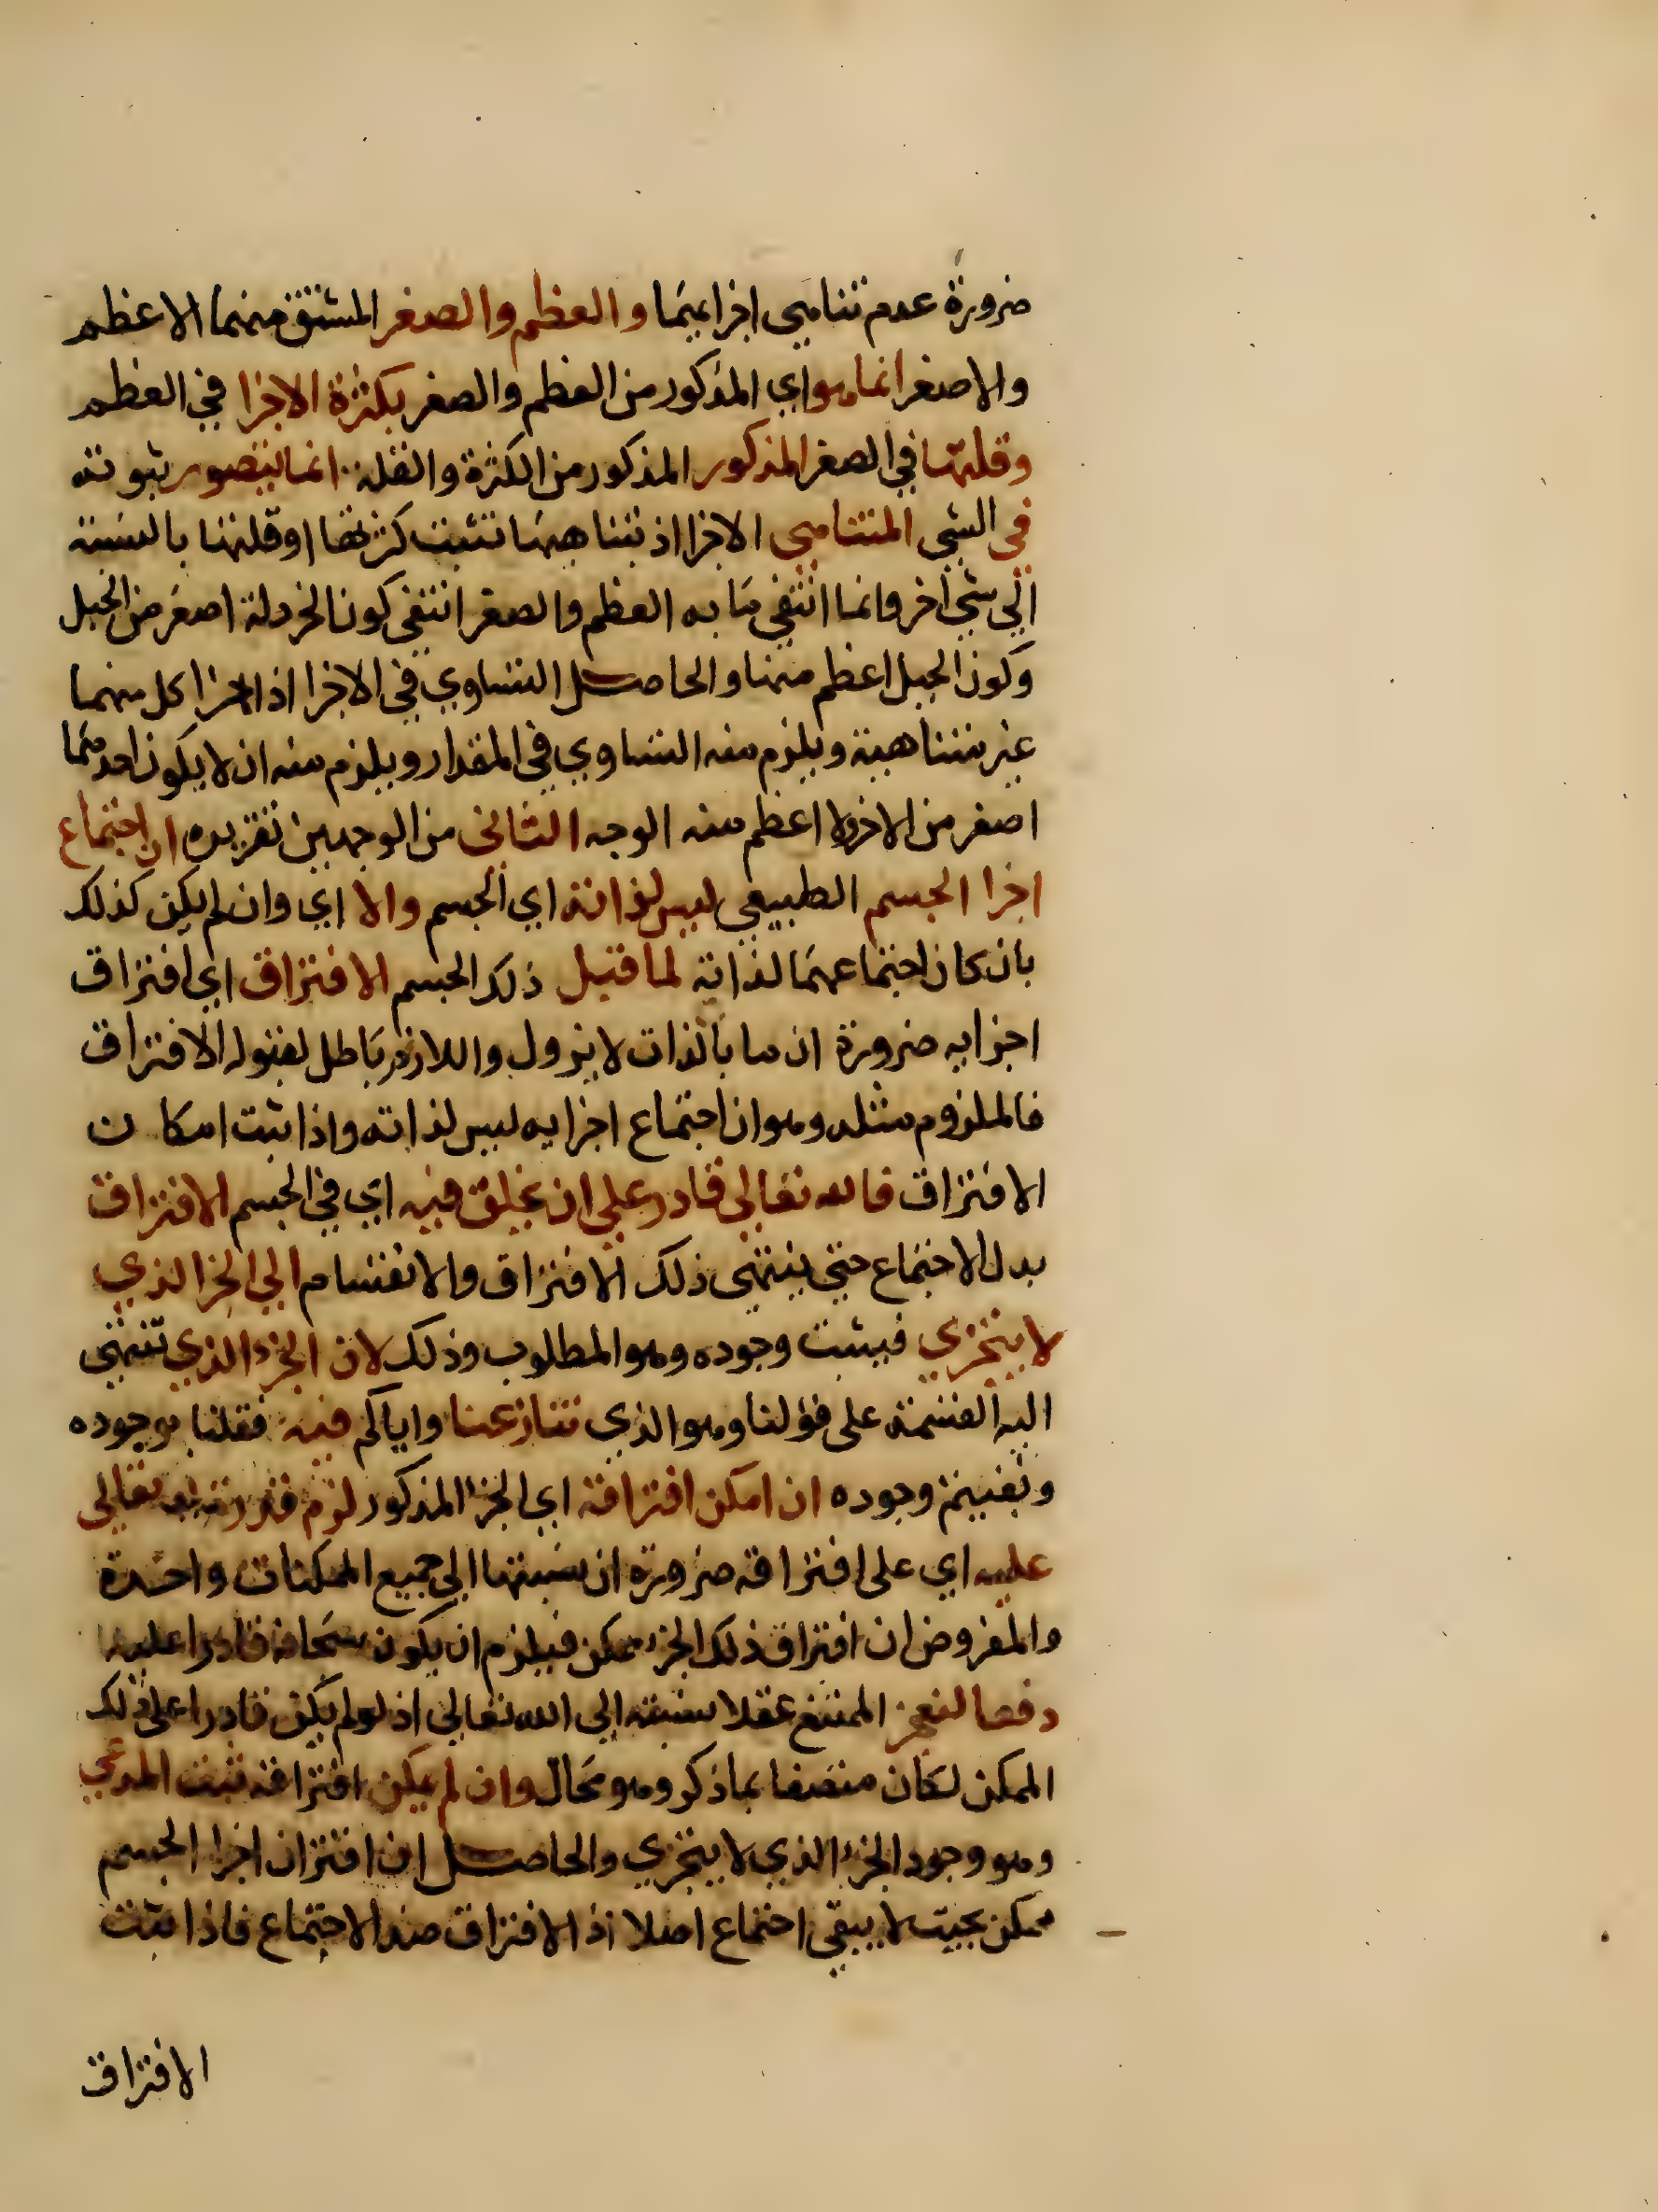 ضرورة عدم تناهي اجزايهما والعظم والصغر المشتق منهما الاعظم
والاصغر انما هو اي المذكور من العظم والصغر بكثرة الاجزا في العظم
وقلتها في الصغر المذكور المذكور من الكثرة والقلة انما يتصور ثبوته
في الشي المتناهي الاجزا اذ بتناهيها تثبت كثرتها او قلتها بالنسبة
الي شي اخر وانما انتفي ما به العظم والصغر انتفي كون الخردلة اصغر من الجبل
وكون الجبل اعظم منها والحاصل التساوي في الاجزا اذ اجزا كل منهما
غير متناهية ويلزم منه التساوي في المقدار ويلزم منه ان لا يكون احدهما
اصغر من الاخر ولا اعظم منه الوجه الثاني من الوجهين تقريره ان اجتماع
اجزا الجسم الطبيعي ليس لذاته اي الجسم والا اي وان لم يكن كذلك
بان كان اجتماعهما لذاته لما قبل ذلك الجسم الافتراق اي افتراق
اجزايه ضرورة ان ما بالذات لا يزول واللازم باطل لقبوله الافتراق
فالملزوم مثله وهو ان اجتماع اجزايه ليس لذاته واذا ثبت امكان
الافتراق فالله تعالي قادر علي ان يخلق فيه اي في الجسم الافتراق
بدل الاجتماع حتي ينتهي ذلك الافتراق والانقسام الي الجزا الذي
لا يتجزي فيثبت وجوده وهو المطلوب وذلك لان الجزء الذي تنتهي
اليه القسمة علي قولنا وهو الذي تنازعنا واياكم فيه فقلنا بوجوده
ونفيتم وجوده ان امكن افتراقه اي الجزء المذكور لزم قدرته تعالي
عليه اي علي افتراقه ضرورة ان نسبتها الي جميع الممكنات واحدة
والمفروض ان افتراق ذلك الجزء ممكن فيلزم ان يكون سبحانه قادرا عليه
دفعا للعجز الممتنع عقلا نسبته الي الله تعالي اذ لو لم يكن قادرا علي ذلك
الممكن لكان متصفا بما ذكر وهو محال وان لم يكن افتراقه ثبت المدعي
وهو وجود الجزء الذي لا يتجزي والحاصل ان افتران اجزا الجسم
ممكن بحيث لا يبقي اجتماع اصلا اذ الافتراق ضد الاجتماع فاذا ثبت
الافتراق